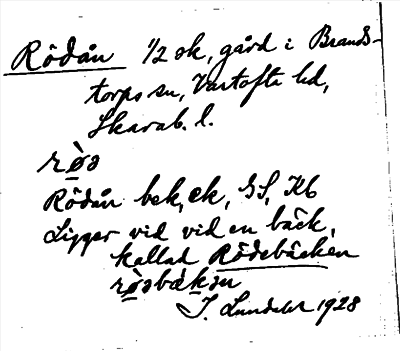 Rödån 1/2 ek, gård i Brands-
torps sn, Vartofta hd,
Skarab. l.
rø̀ə
Rödån bek, ek, GS, Kb
Ligger vid vid en bäck,
kallad Rödebäcken
J. Lundahl 1928